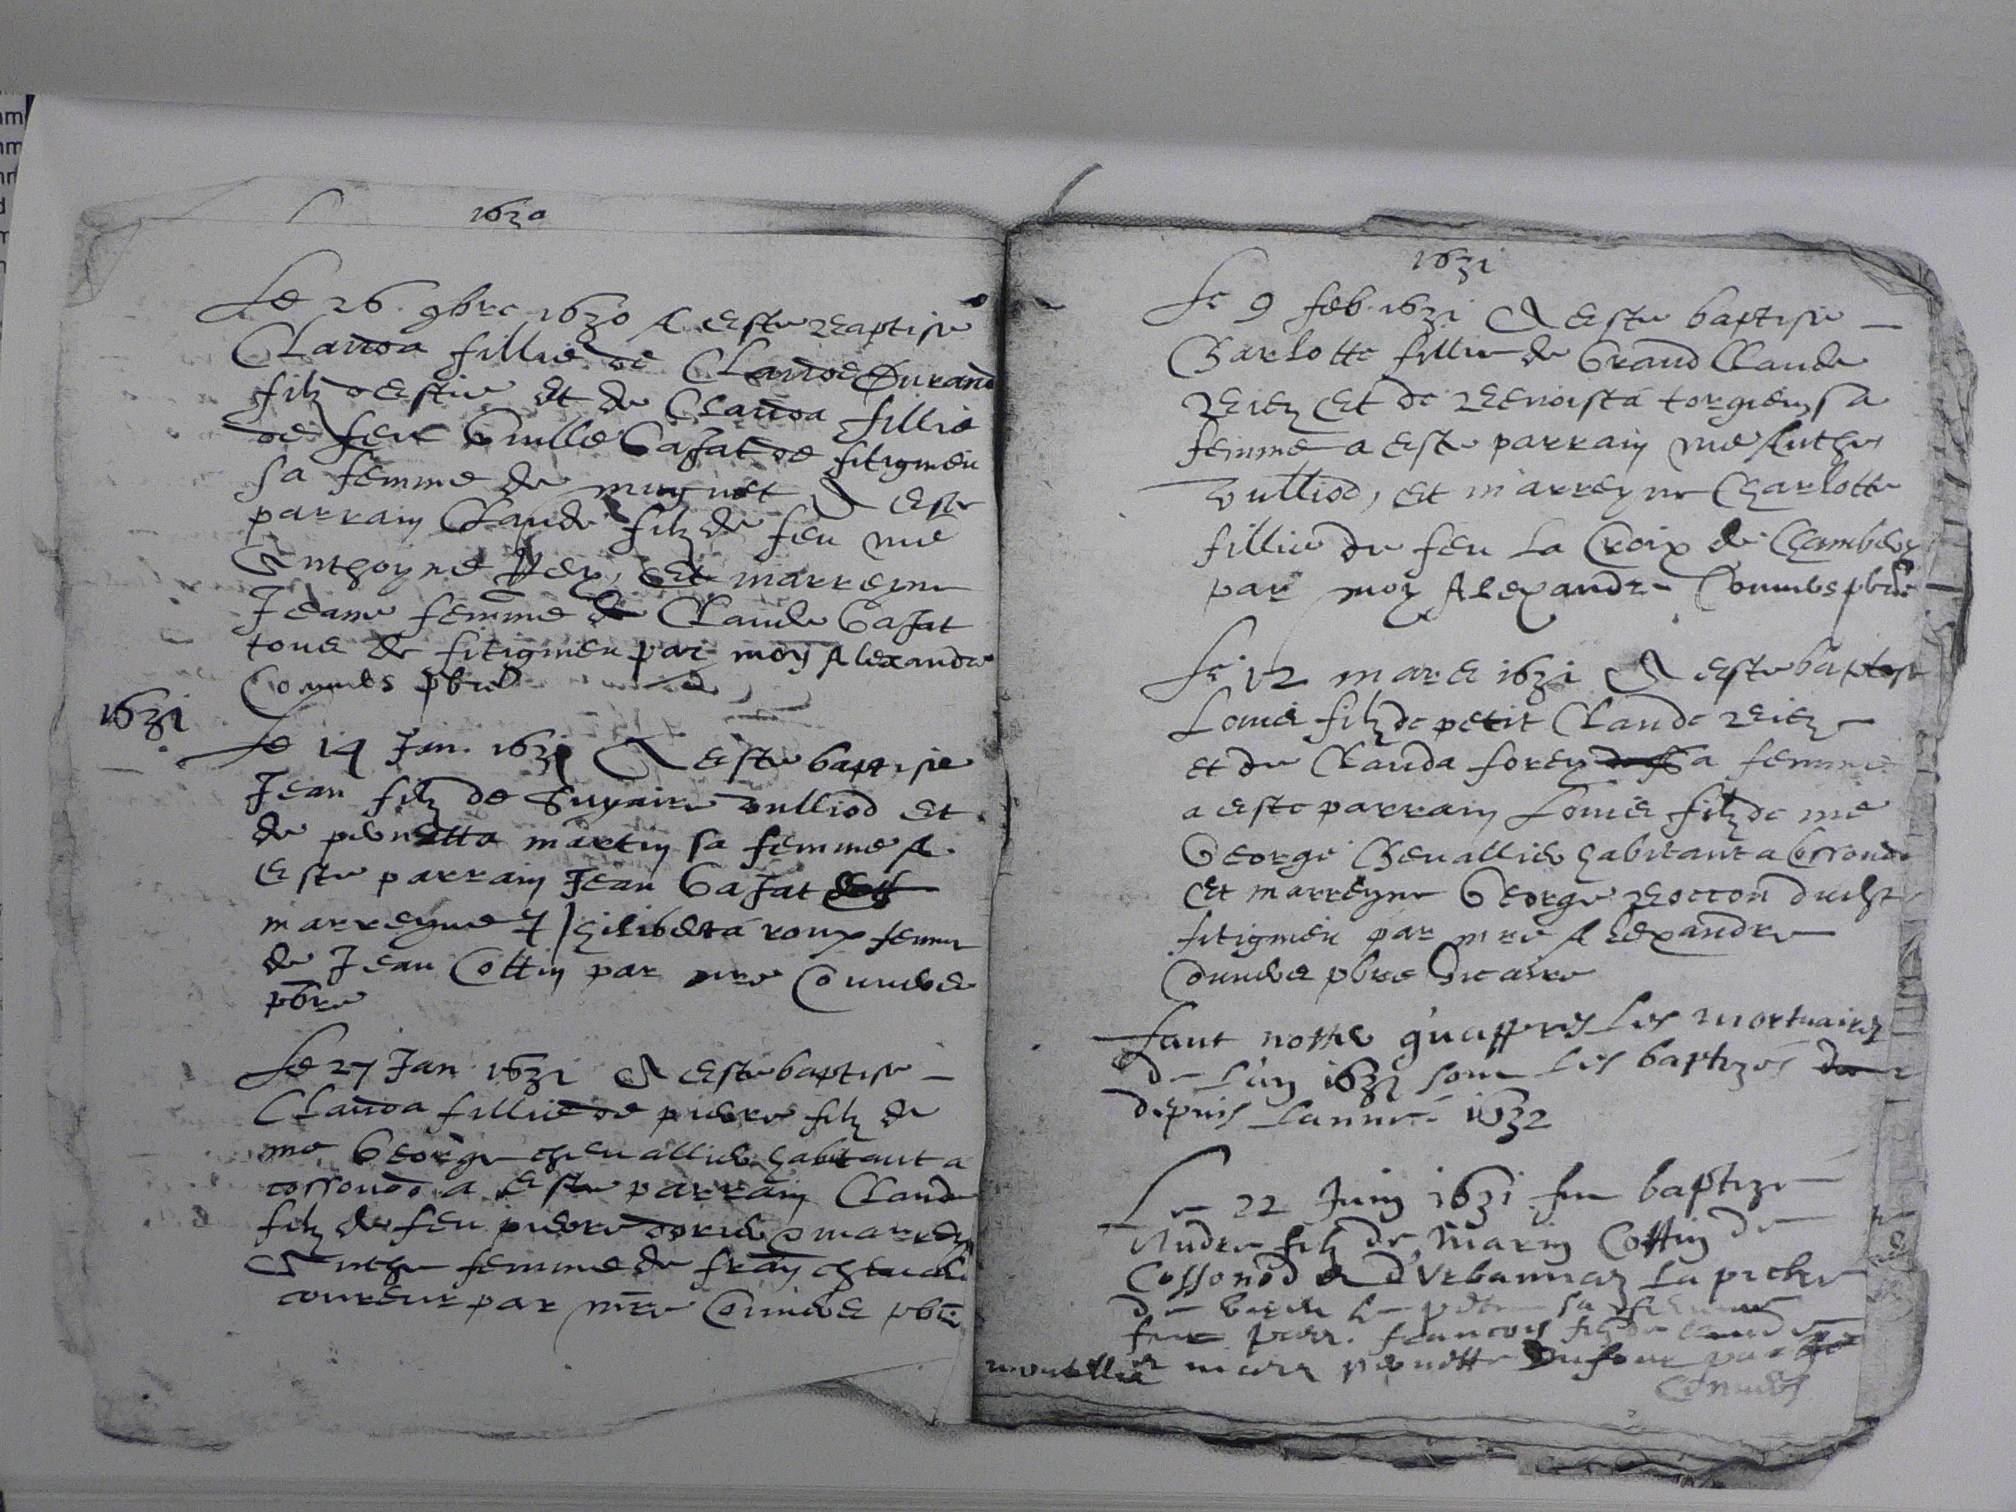 1630
Le 26 9bre 1630 A este baptise
Clauda fillie de Claude Durand
filz destie et de Clauda fillie
de feu Guille Gajat de fitignieu
sa femme de A este
parrain Claude filz de feu me
Anthoyne Rey, et marreyne
Jeane femme de Claude Gajat
tous de fitignieu par moy Alexandre
Combes pbre
1631
Le 14 Jan. 1631 A este baptise
Jean filz de vulliod et
de pernetta martin sa femme A
este parrain Jean Gajat
marreyne giliberta roux femme
de Jean Cottin par mre Combes
pbre
Le 27 Jan 1631 A este baptise
Clauda fillie de pierre filz de
me George chevallier habitant a
cossonod a este parrain Claude
filz de feu pierre marreyne
Anthe femme de fran chevalier
coureur par mre Combes pbre
1631
Le 9 feb. 1631 A este baptise
Charlotte fillie de Grand Claude
Reiez Et de Benoista torgieuz sa
femme a este parrain me Anthe
vulliod, et marreyne Charlotte
fillie de feu La Croix de Chambery
par moy Alexandre Combes pbre
Le 12 mars 1631 A este baptise
Louis filz de petit Claude Reiez
et de Clauda forey sa femme
a este parrain Louis filz de me
George Chevallier habitant a Cossonod
Et marreyne George Boccon dudict
fitignieu par mre Alexandre
Combes pbre vicaire
faut notter quappres les mortuaires
de lan 1631 sont les baptizes
depuis lannee 1632
Le 22 Juin 1631 fut baptize
Andre filz de Marin Cottin de
Cossonod et d'Urbanniaz la
de sa femme
fut parr. francois filz de
marr pernette Dufour par
Combes